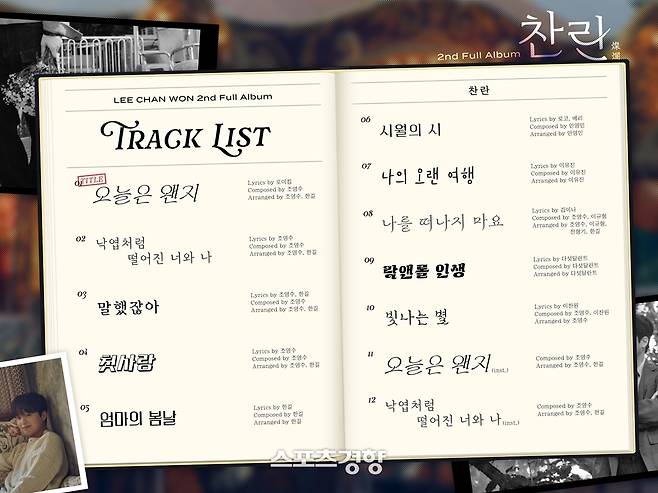 2nd Full Album
찬란
燦爛
LEE CHAN WON 2nd Full Album
TRACK LIST
TITLE
01
오늘은 왠지
Lyrics by 로이킴
Composed by 조영수
Arranged by 조영수, 한길
02
낙엽처럼
떨어진 너와 나
Lyrics by 조영수
Composed by 조영수
Arranged by 조영수, 한길
03
말했잖아
Lyrics by 조영수, 한길
Composed by 조영수
Arranged by 조영수, 한길
04
첫사랑
Lyrics by 한길
Composed by 조영수
Arranged by 조영수, 한길
05
엄마의 봄날
Lyrics by 한길
Composed by 한길
Arranged by 한길
찬란
06
시월의 시
Lyrics by 로코, 베리
Composed by 안영민
Arranged by 안영민
07
나의 오랜 여행
Lyrics by 이유진
Composed by 이유진
Arranged by 이유진
08
나를 떠나지 마요
Lyrics by 김이나
Composed by 조영수, 이규형
Arranged by 조영수, 이규형,
한길
09
락앤롤 인생
Lyrics by 다섯달란트
Composed by 다섯달란트
Arranged by 다섯달란트
10
빛나는 별
Lyrics by 이찬원
Composed by 조영수, 이찬원
Arranged by 조영수
11
오늘은 왠지(inst.)
Composed by 조영수
Arranged by 조영수, 한길
12
낙엽처럼
떨어진 너와 나(inst.)
Composed by 조영수
Arranged by 조영수, 한길
스포츠경향